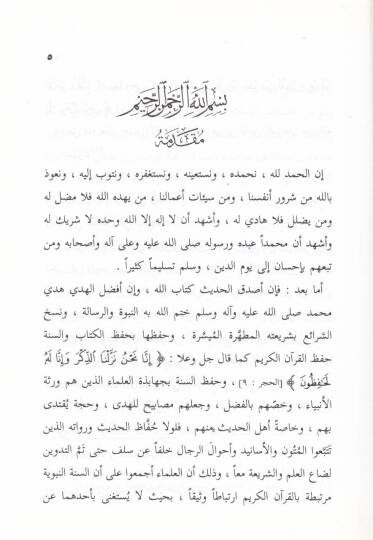 ٥
بسم الله الرحمن الرحيم
مُقَدّمَةُ
إن الحمد لله ، نحمده ، ونستعينه ، ونستغفره ، ونتوب إليه ، ونعوذ
بالله من شرور أنفسنا ، ومن سيئات أعمالنا ، من يهده الله فلا مضل له
ومن يضلل فلا هادي له ، وأشهد أن لا إله إلا الله وحده لا شريك له
وأشهد أن محمداً عبده ورسوله صلى الله عليه وعلى آله وأصحابه ومن
تبعهم بإحسان إلى يوم الدين ، وسلم تسليماً كثيراً .
أما بعد : فإن أصدق الحديث كتاب الله ، وإن أفضل الهدي هدي
محمد صلى الله عليه وآله وسلم ختم الله به النبوة والرسالة ، ونسخ
الشرائع بشريعته المطهَّرة المُيسَّرة ، وحفظها بحفظ الكتاب والسنة
حفظ القرآن الكريم كما قال جل وعلا : ﴿ إِنَّا نَحْنُ نَزَّلْنَا ٱلذِّكْرَ وَإِنَّا لَهُۥ
لَحَٰفِظُونَ ﴾ [الحجر : ٩] ، وحفظ السنة بجهابذة العلماء الذين هم ورثة
الأنبياء ، وخصّهم بالفضل ، وجعلهم مصابيح للهدى ، وحجة يُقتدى
بهم ، وخاصةً أهل الحديث منهم ، فلولا حُفَّاظ الحديث ورواته الذين
تَتَبَّعوا المُتُون والأسانيد وأحوالَ الرجال خلفاً عن سلف حتى تَمَّ التدوين
لضاع العلم والشريعة معاً ، وذلك أن العلماء أجمعوا على أن السنة النبوية
مرتبطة بالقرآن الكريم ارتباطاً وثيقاً ، بحيث لا يستغنى بأحدهما عن